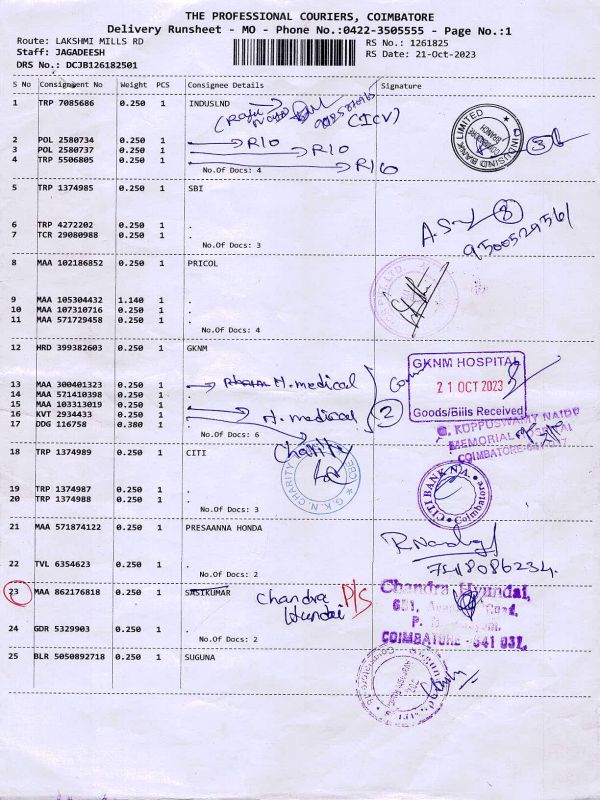 THE PROFESSIONAL COURIERS, COIMBATORE
Delivery Runsheet - MO - Phone No.:0422-3505555 - Page No.:1
Route: LAKSHMI MILLS RD
RS No.: 1261825
Staff: JAGADEESH
RS Date: 21-Oct-2023
DRS No.: DCJB126182501
S No Consignment No Weight PCS Consignee Details Signature
1 TRP 7085686 0.250 1 INDUSLND
(ICV)
2 POL 2580734 0.250 1 . R10
3 POL 2580737 0.250 1 . R10
4 TRP 5506805 0.250 1 . R10
No.Of Docs: 4
INDUSIND BANK LIMITED
COIMBATORE
BRANCH
5 TRP 1374985 0.250 1 SBI
6 TRP 4272202 0.250 1 .
7 TCR 29080988 0.250 1 .
No.Of Docs: 3
8
9500529561
8 MAA 102186852 0.250 1 PRICOL
9 MAA 105304432 1.140 1 .
10 MAA 107310716 0.250 1 .
11 MAA 571729458 0.250 1 .
No.Of Docs: 4
12 HRD 399382603 0.250 1 GKNM
13 MAA 300401323 0.250 1 . H.medical
14 MAA 571410398 0.250 1 .
15 MAA 103313019 0.250 1 .
16 KVT 2934433 0.250 1 . H.medical
17 DDG 116758 0.380 1 .
No.Of Docs: 6
2
GKNM HOSPITAL
21 OCT 2023
Goods/Bills Received
G. KUPPUSWAMY NAIDU
MEMORIAL HOSPITAL
COIMBATORE-641037
Charity
G.K.N. CHARITY
18 TRP 1374989 0.250 1 CITI
19 TRP 1374987 0.250 1 .
20 TRP 1374988 0.250 1 .
No.Of Docs: 3
CITI BANK N.A.
Coimbatore
21 MAA 571874122 0.250 1 PRESAANNA HONDA
22 TVL 6354623 0.250 1 .
No.Of Docs: 2
7418086234.
23 MAA 862176818 0.250 1 SASIKUMAR
Chandra
Hundai
P/S
24 GDR 5329903 0.250 1 .
No.Of Docs: 2
Chandra Hyundai,
COIMBATORE - 641 037.
25 BLR 5050892718 0.250 1 SUGUNA